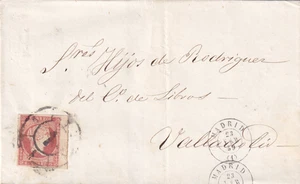 Sres Hijos de Rodriguez
del Co. de Libros
Valladolid
MADRID
23
MADRID
23